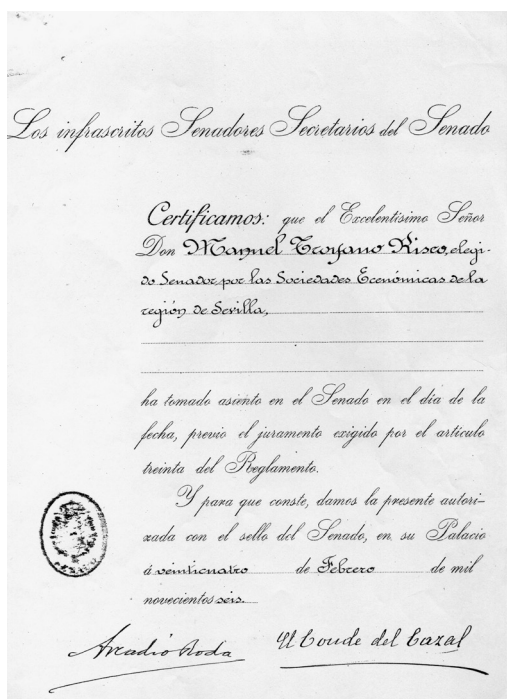 Los infrascritos Senadores Secretarios del Senado
Certificamos: que el Excelentísimo Señor
Don Manuel Troyano Risco, elegi-
do Senador por las Sociedades Económicas de la
región de Sevilla,
ha tomado asiento en el Senado en el día de la
fecha, previo el juramento exigido por el artículo
treinta del Reglamento.
Y para que conste, damos la presente autori-
zada con el sello del Senado, en su Palacio
á veinticuatro de Febrero de mil
novecientos seis.
Arcadio Roda
El Conde del Cazal